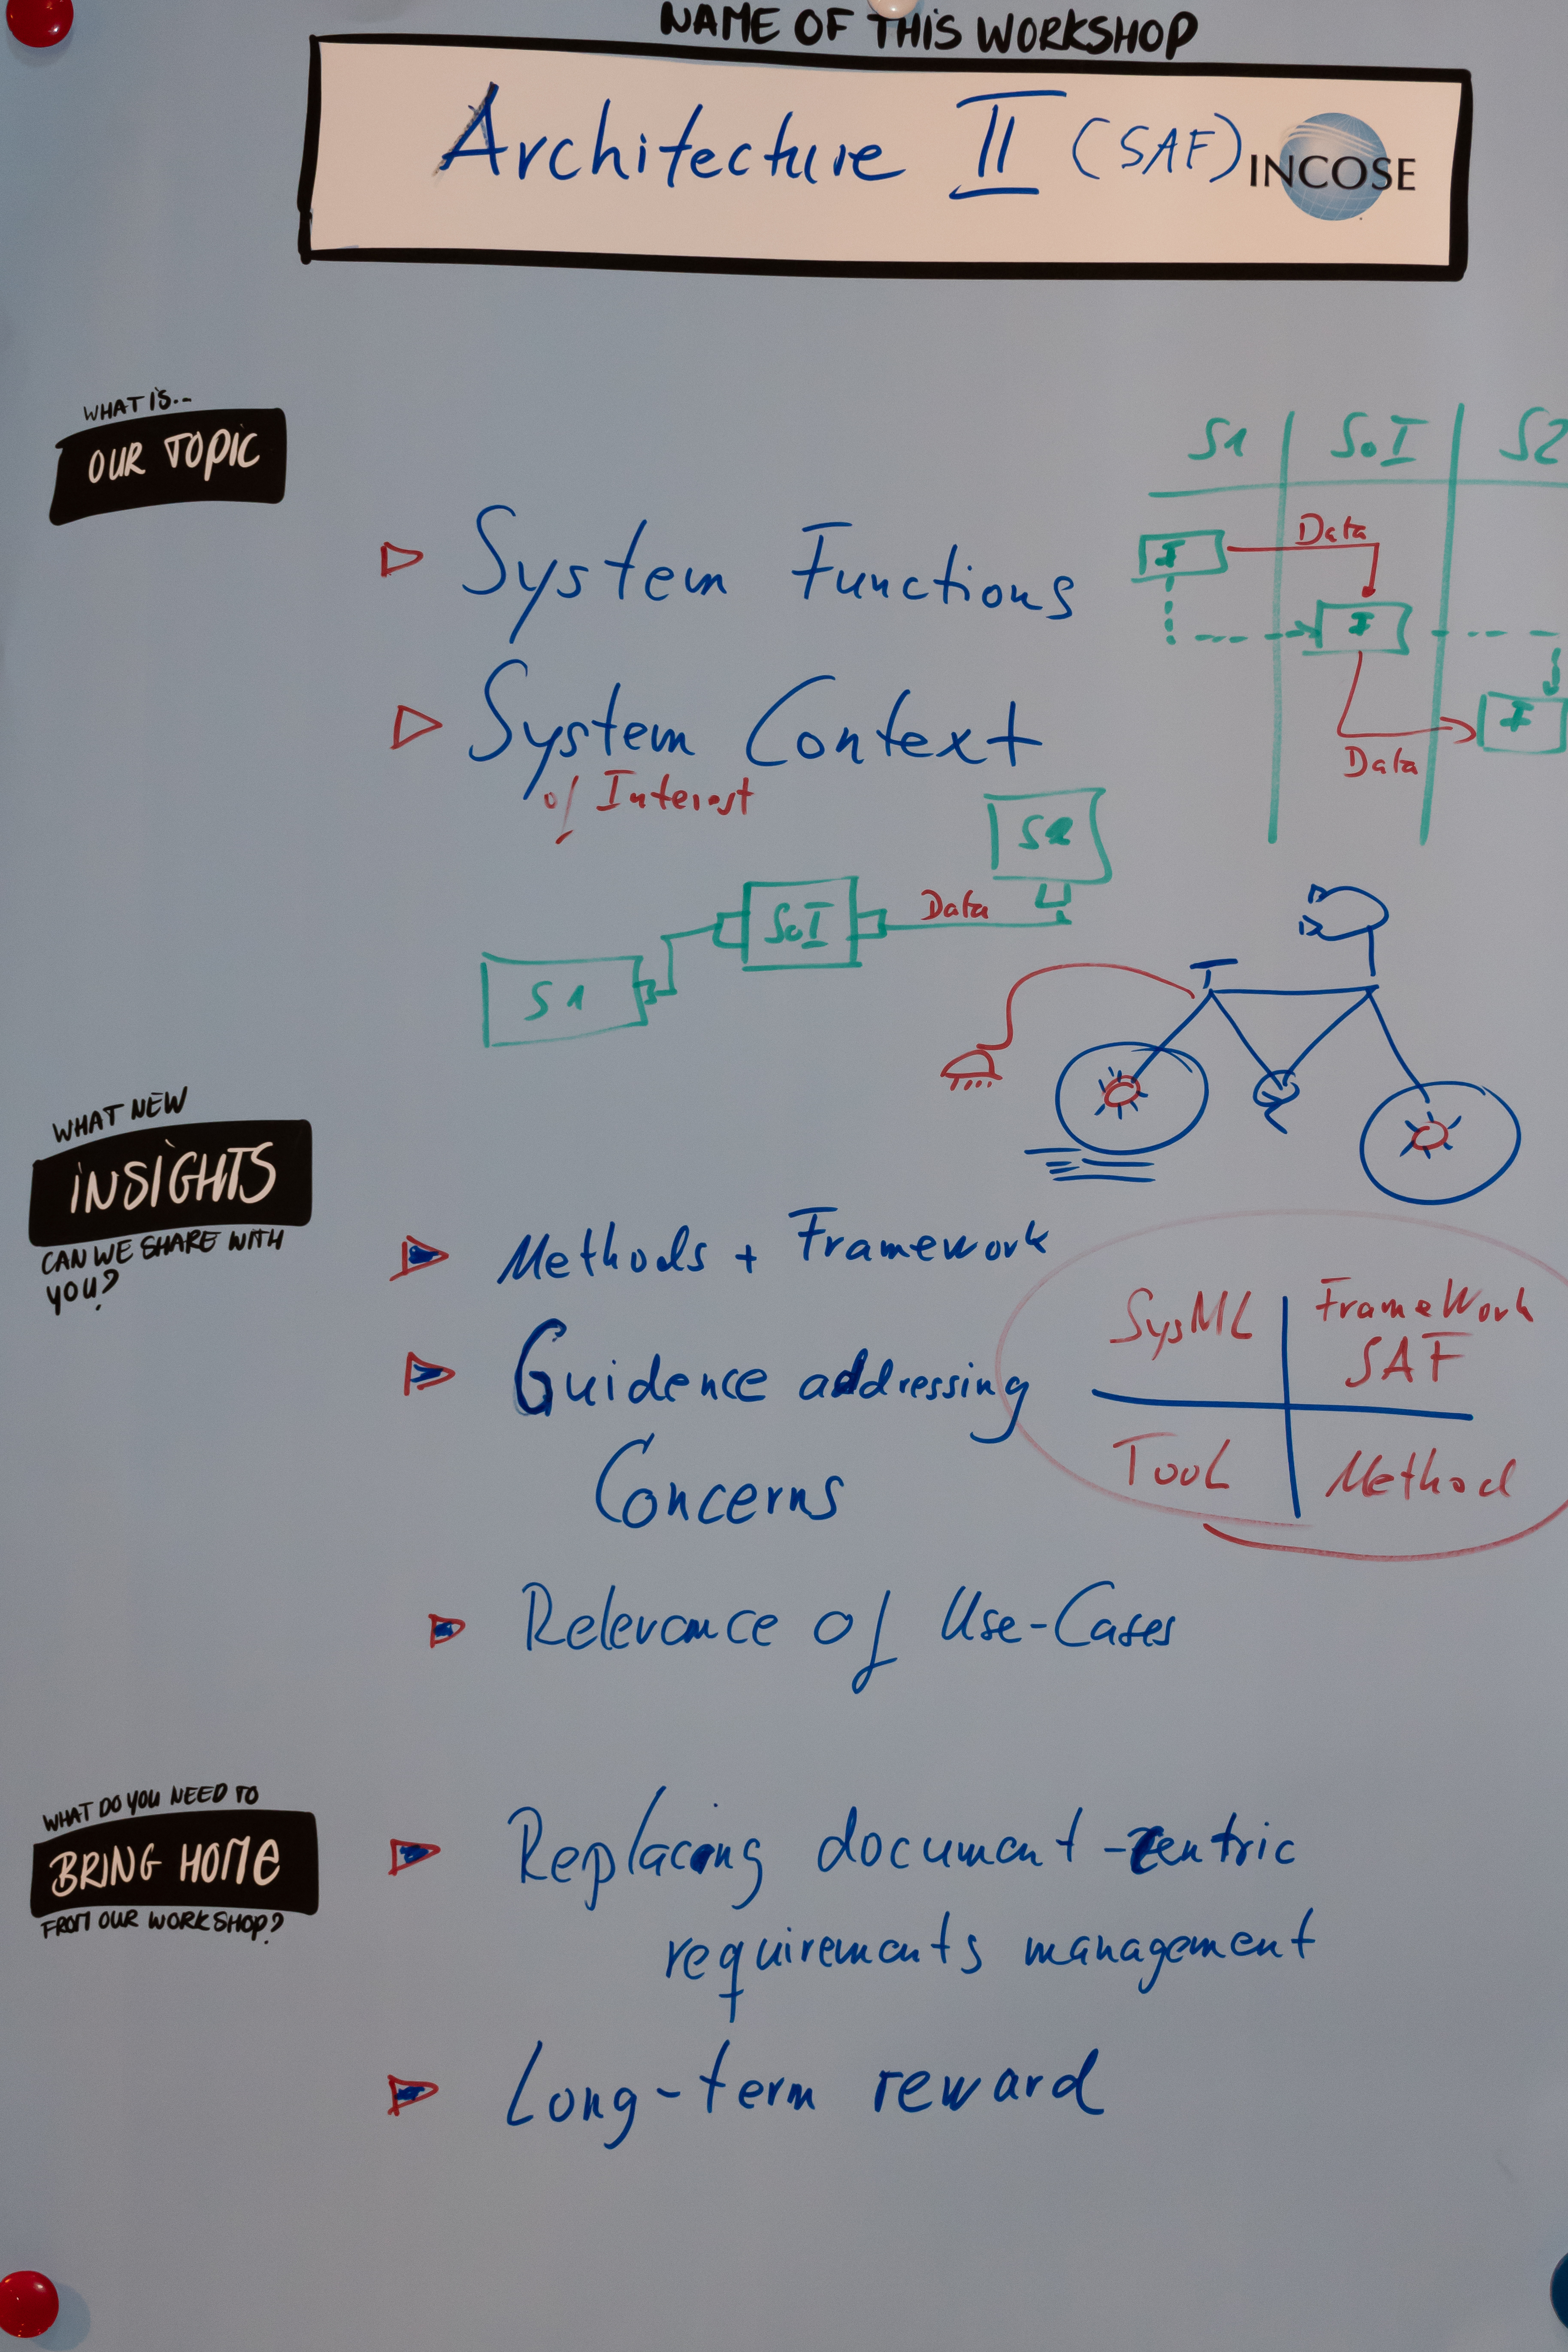 NAME OF THIS WORKSHOP
Architecture II (SAF) INCOSE
WHAT IS...
OUR TOPIC
S1 SoI S2
System Functions
Data
F
F
F
Data
System Context
of Interest
S2
SoI
Data
S1
WHAT NEW
INSIGHTS
CAN WE SHARE WITH
YOU?
Methods + Framework
Guidence addressing
Concerns
SysML FrameWork
SAF
TooL Method
Relevance of Use-Cases
WHAT DO YOU NEED TO
BRING HOME
FROM OUR WORKSHOP?
Replacing document-centric
requirements management
Long-term reward